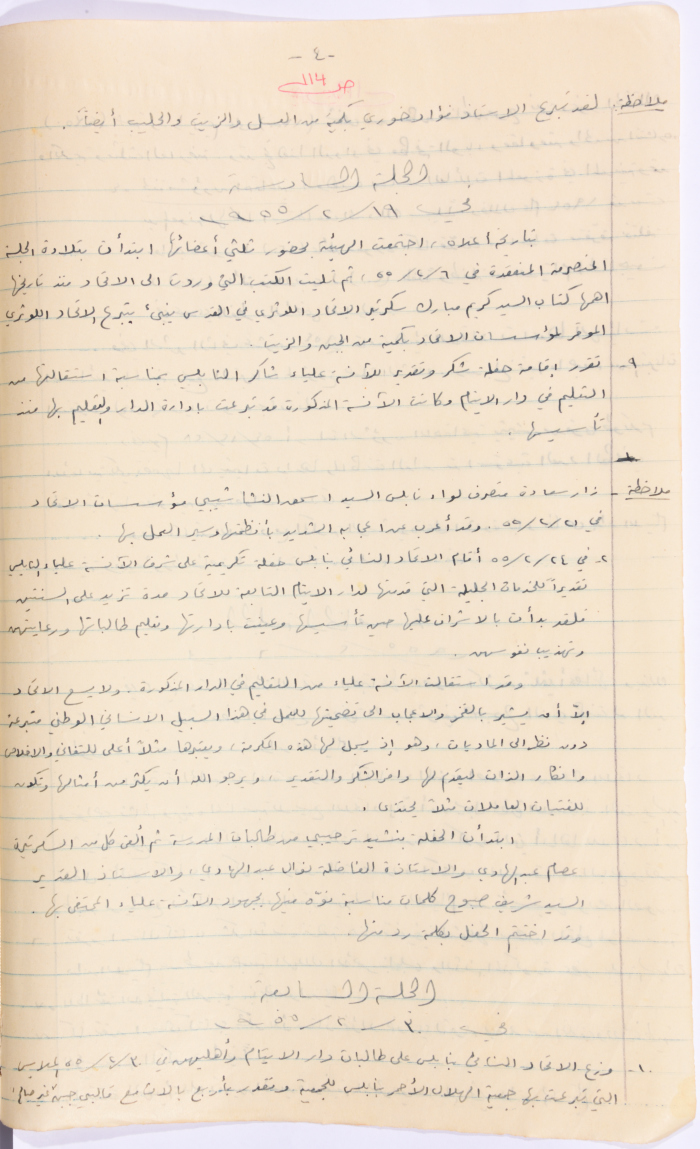 - ٤ -
ص ١١٤
ملاحظة: لقد تبرع الاستاذ فؤاد خوري بكمية من العسل والزيت والحليب أيضاً.
الجلسة السادسة
في ١٩ / ٢ / ١٩٥٥
بتاريخ اعلاه، اجتمعت الهيئة بحضور ثلثي أعضائها ابتدأت بتلاوة الجلسة
المنصرمة المنعقدة في ٦/٢/٥٥، ثم تليت الكتب التي وردت الى الاتحاد منذ تاريخها
اهمها كتاب السيد كريم مبارك سكرتير الاتحاد اللوثري في القدس ينبئ بتبرع الاتحاد اللوثري
الموقر لمؤسسات الاتحاد بكمية من الجبن والزيت.
٩- تقرر اقامة حفلة شكر وتقدير للآنسة علياء شاكر النابلسي بمناسبة استقالتها من
التعليم في دار الايتام وكانت الآنسة المذكورة قد تبرعت بادارة الدار والتعليم بها منذ
تأسيسها.
ملاحظة - زار سعادة متصرف لواء نابلس السيد اسعد النشاشيبي مؤسسات الاتحاد
في ٢١/٢/٥٥. وقد أعرب عن اعجابه الشديد بأنظمتها وسير العمل بها.
٢- في ٢٤/٢/٥٥ أقام الاتحاد النسائي بنابلس حفلة تكريمية على شرف الآنسة علياء النابلسي
تقديراً للخدمات الجليلة التي قدمتها لدار الايتام التابعة للاتحاد مدة تزيد على السنتين
فلقد بدأت بالاشراف عليها حين تأسيسها وعينت بادارتها وتعليم طالباتها ورعايتهن
وتهذيب نفوسهن.
وقد استقالت الآنسة علياء من التعليم في الدار المذكورة. ولا يسع الاتحاد
إلا أن يشير بالفخر والاعجاب الى تضحيتها للعمل في هذا السبيل الانساني الوطني متبرعة
دون نظر الى الماديات، وهو إذ يسجل لها هذه المكرمة، ويعتبرها مثلاً أعلى للتفاني والاخلاص
وانكار الذات ليقدم لها وافر الشكر والتقدير، ويرجو الله أن يكثر من أمثالها وتكون
للفتيات العاملات مثلاً يحتذى.
ابتدأت الحفلة بنشيد ترحيبي من طالبات المدرسة ثم ألقى كل من السكرتيرة
عصام عبد الهادي والاستاذة الفاضلة نوال عبد الهادي، والاستاذ القدير
السيد شريف صبوح كلمات مناسبة نوّه فيها بجهود الآنسة علياء المحتفى بها.
وقد اختتم الحفل بكلمة رد منها.
الجلسة السابعة
في ٣٠/٢/١٩٥٥
١٠- وزع الاتحاد النسائي بنابلس على طالبات دار الايتام وأهليهن في ٣٠/٢/٥٥ الملابس
التي تبرعت بها جمعية الهلال الأحمر بنابلس للجمعية وتقدر بأربع بالات مع قالبي جبنة